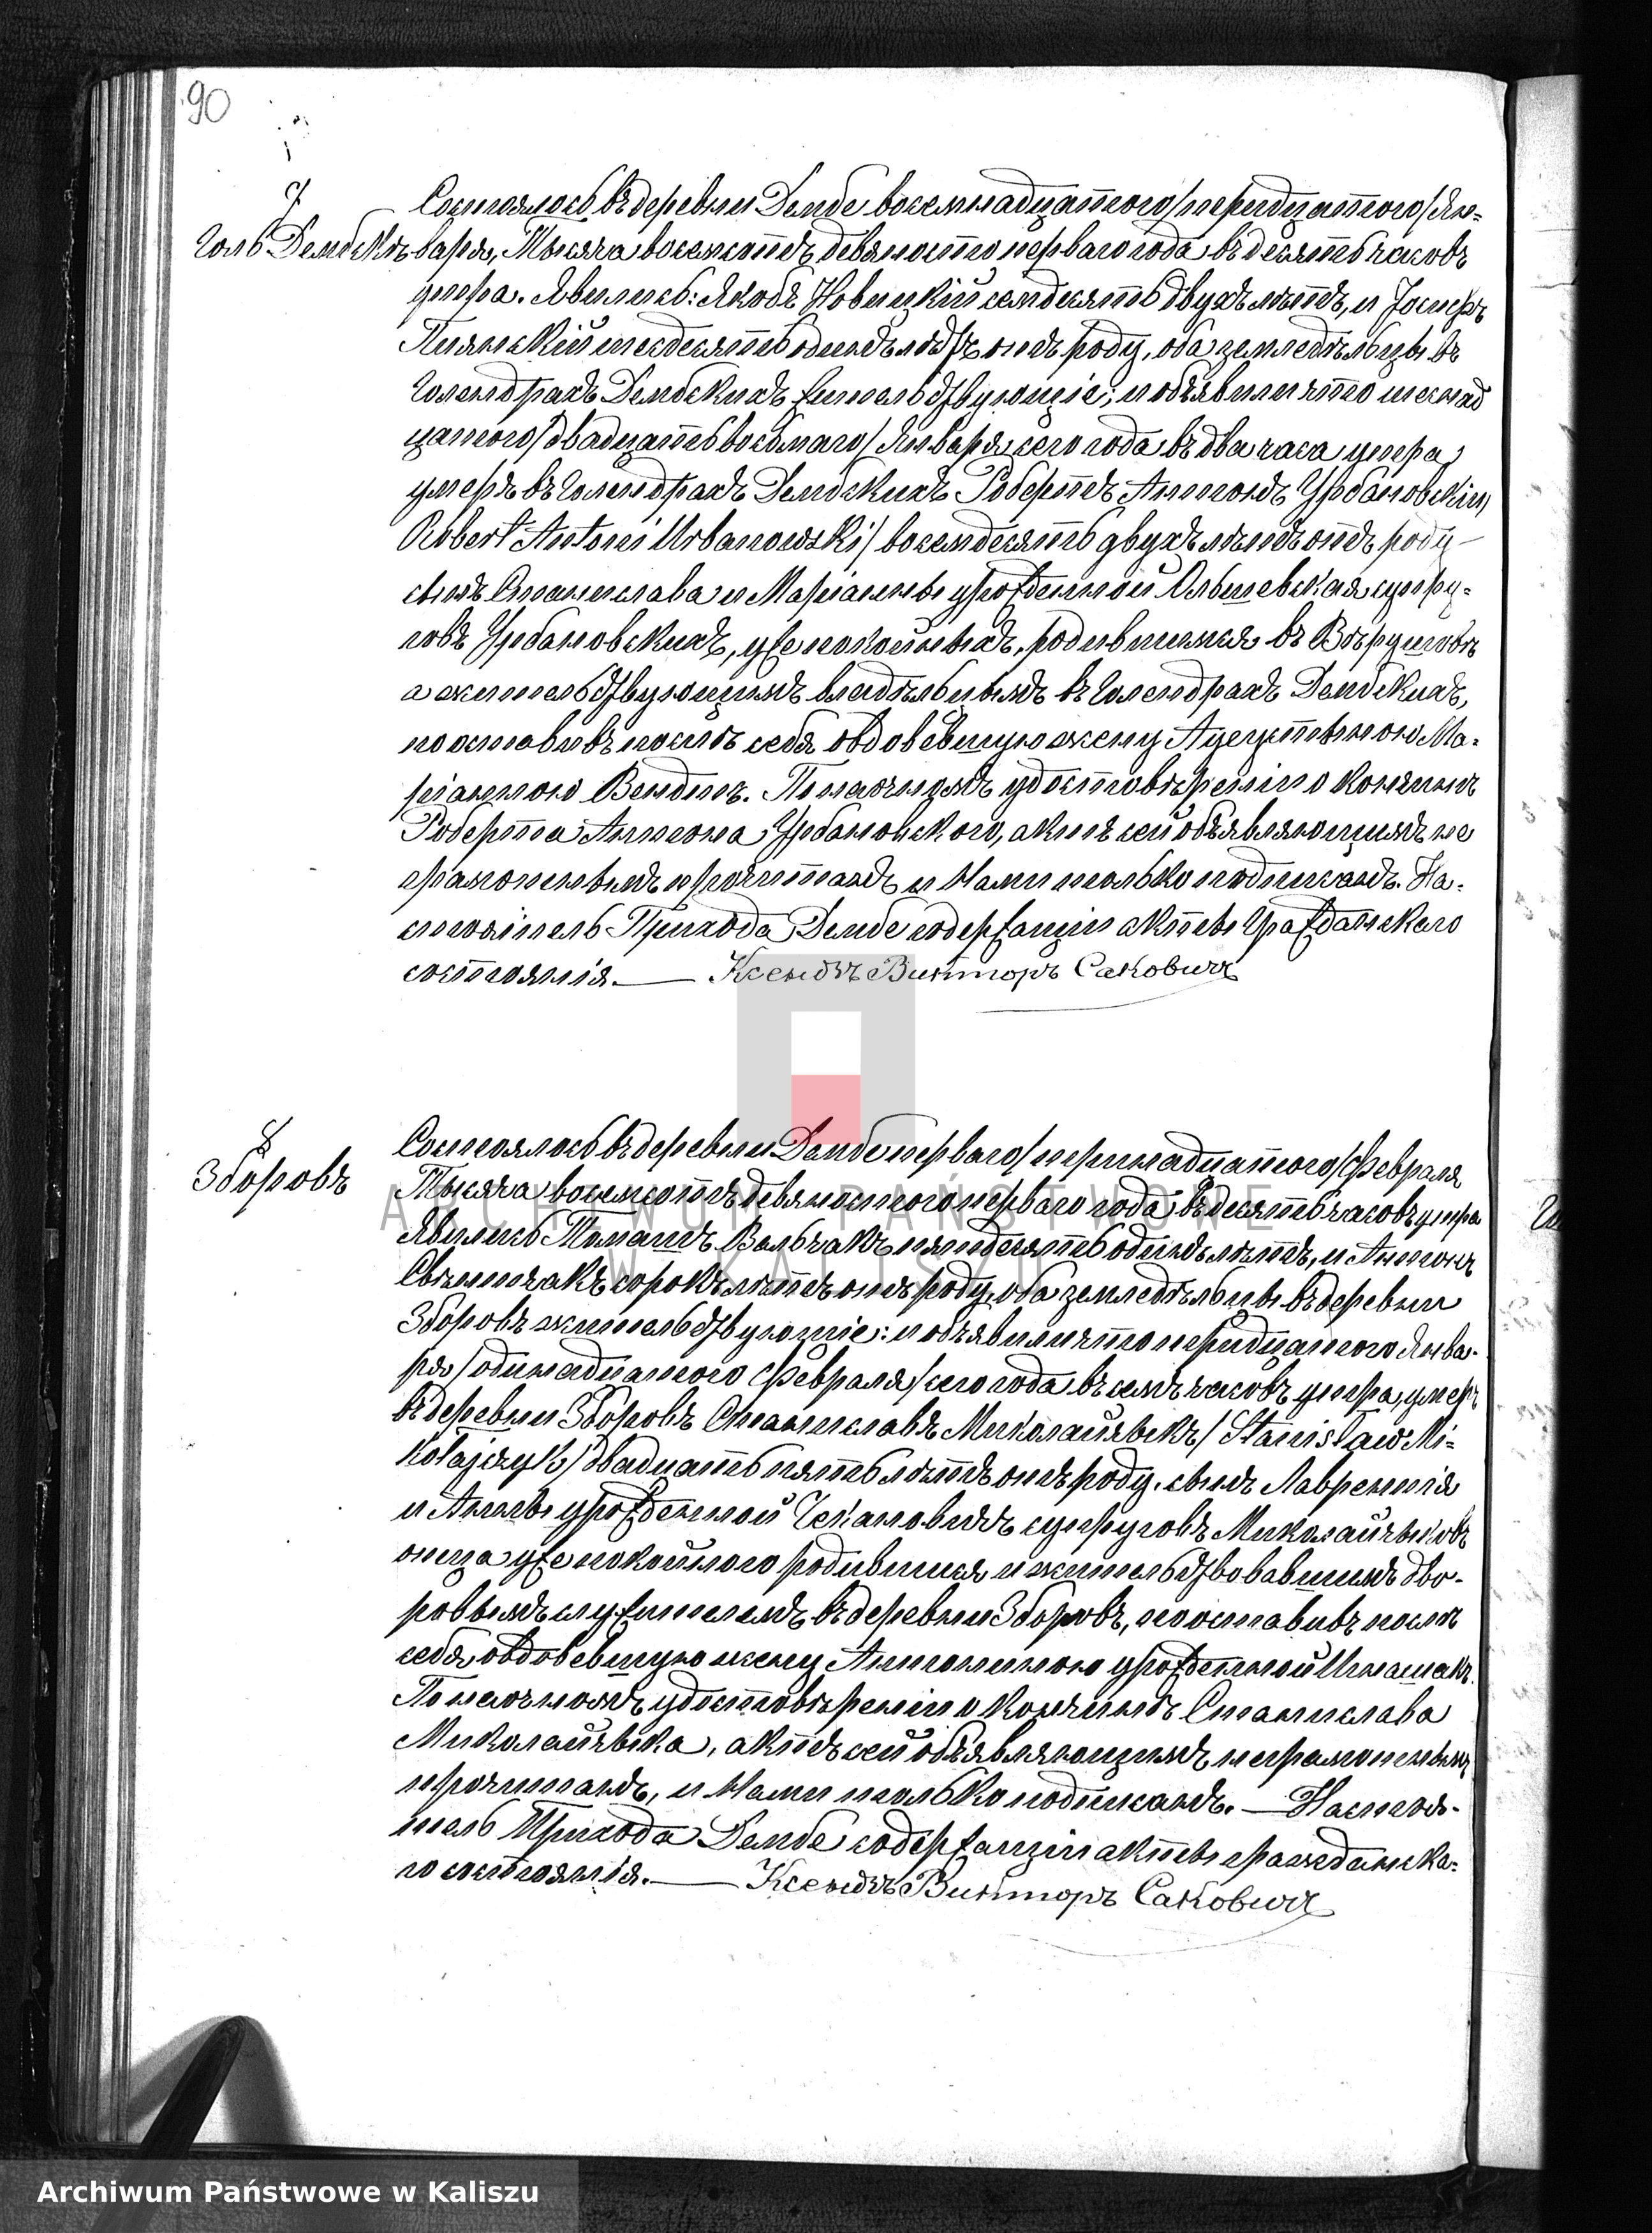 90
7
Гол. Дембскъ
Состоялось въ деревни Дембе восемнадцатого/тридцатого/Ян=
варя, Тысяча восемсотъ девяносто перваго года въ десять часовъ
утра. Явились: Якобъ Новицкій семдесять двухъ лѣтъ, и Іосифъ
шесдесять одинъ лѣтъ отъ роду, оба земледѣльцы въ
Голендрахъ Дембскихъ жительствующіе; и объявили что шеснад
цатого/двадцать восьмаго/Января сего года въ два часа утра,
умеръ въ Голендрахъ Дембскихъ Робертъ Антонъ Урбановскій,
Robert Antoni Urbanowski/ восемдесять двухъ лѣтъ отъ роду
сынъ Станислава и Маріанны урожденной Ольшевская супру=
говъ Урбановскихъ, уже покойныхъ, родившимся въ
а жительствующимъ владѣльцымъ въ Голендрахъ Дембскихъ,
поставивъ послѣ себя овдовевшую жену Аугустынною Ма=
ріанною Вендтъ. По наочномъ удостовѣреніи о кончинѣ
Роберта Антона Урбановского, актъ сей объявляющимъ не
грамотнымъ прочитанъ и Нами только подписанъ. На=
стоятель Прихода Дембе содержащій акты Гражданского
состоянія. — Ксендзъ Викторъ Саковичъ
8
Зборовъ
Состоялось въ деревни Дембе перваго/тринадцатого/Февраля
Тысяча восемсотъ девяностого перваго года, въ десять часовъ утра
Явились Томашъ Вальчакъ пятдесять одинъ лѣтъ, и Антонъ
сорокъ лѣтъ отъ роду, оба земледѣльцы въ деревни
Зборовъ жительствующіе: и объявили что тридцатого Янва=
ря/одинадцатого Февраля/сего года въ семъ часовъ утра, умеръ
въ деревни Зборовъ Станиславъ Миколайчыкъ/Stanisław Mi=
kołajczyk/двадцать пять лѣтъ отъ роду, сынъ Лаврентія
и урожденной Чекановичъ супруговъ Миколайчыковъ
отца уже покойного родившися и жительствовавшимъ дво=
ровымъ служителемъ въ деревни Зборовъ, поставивъ послѣ
себя овдовевшую жену Антониною урожденной Игнашакъ.
По наочномъ удостовѣреніи о кончинѣ Станислава
Миколайчыка, актъ сей объявляющимъ неграмотнымъ
прочитанъ, и Нами только подписанъ. — Настоя=
тель Прихода Дембе содержащій акты гражданска=
го состоянія. — Ксендзъ Викторъ Саковичъ
ARCHIWUM PAŃSTWOWE
W KALISZU
Archiwum Państwowe w Kaliszu